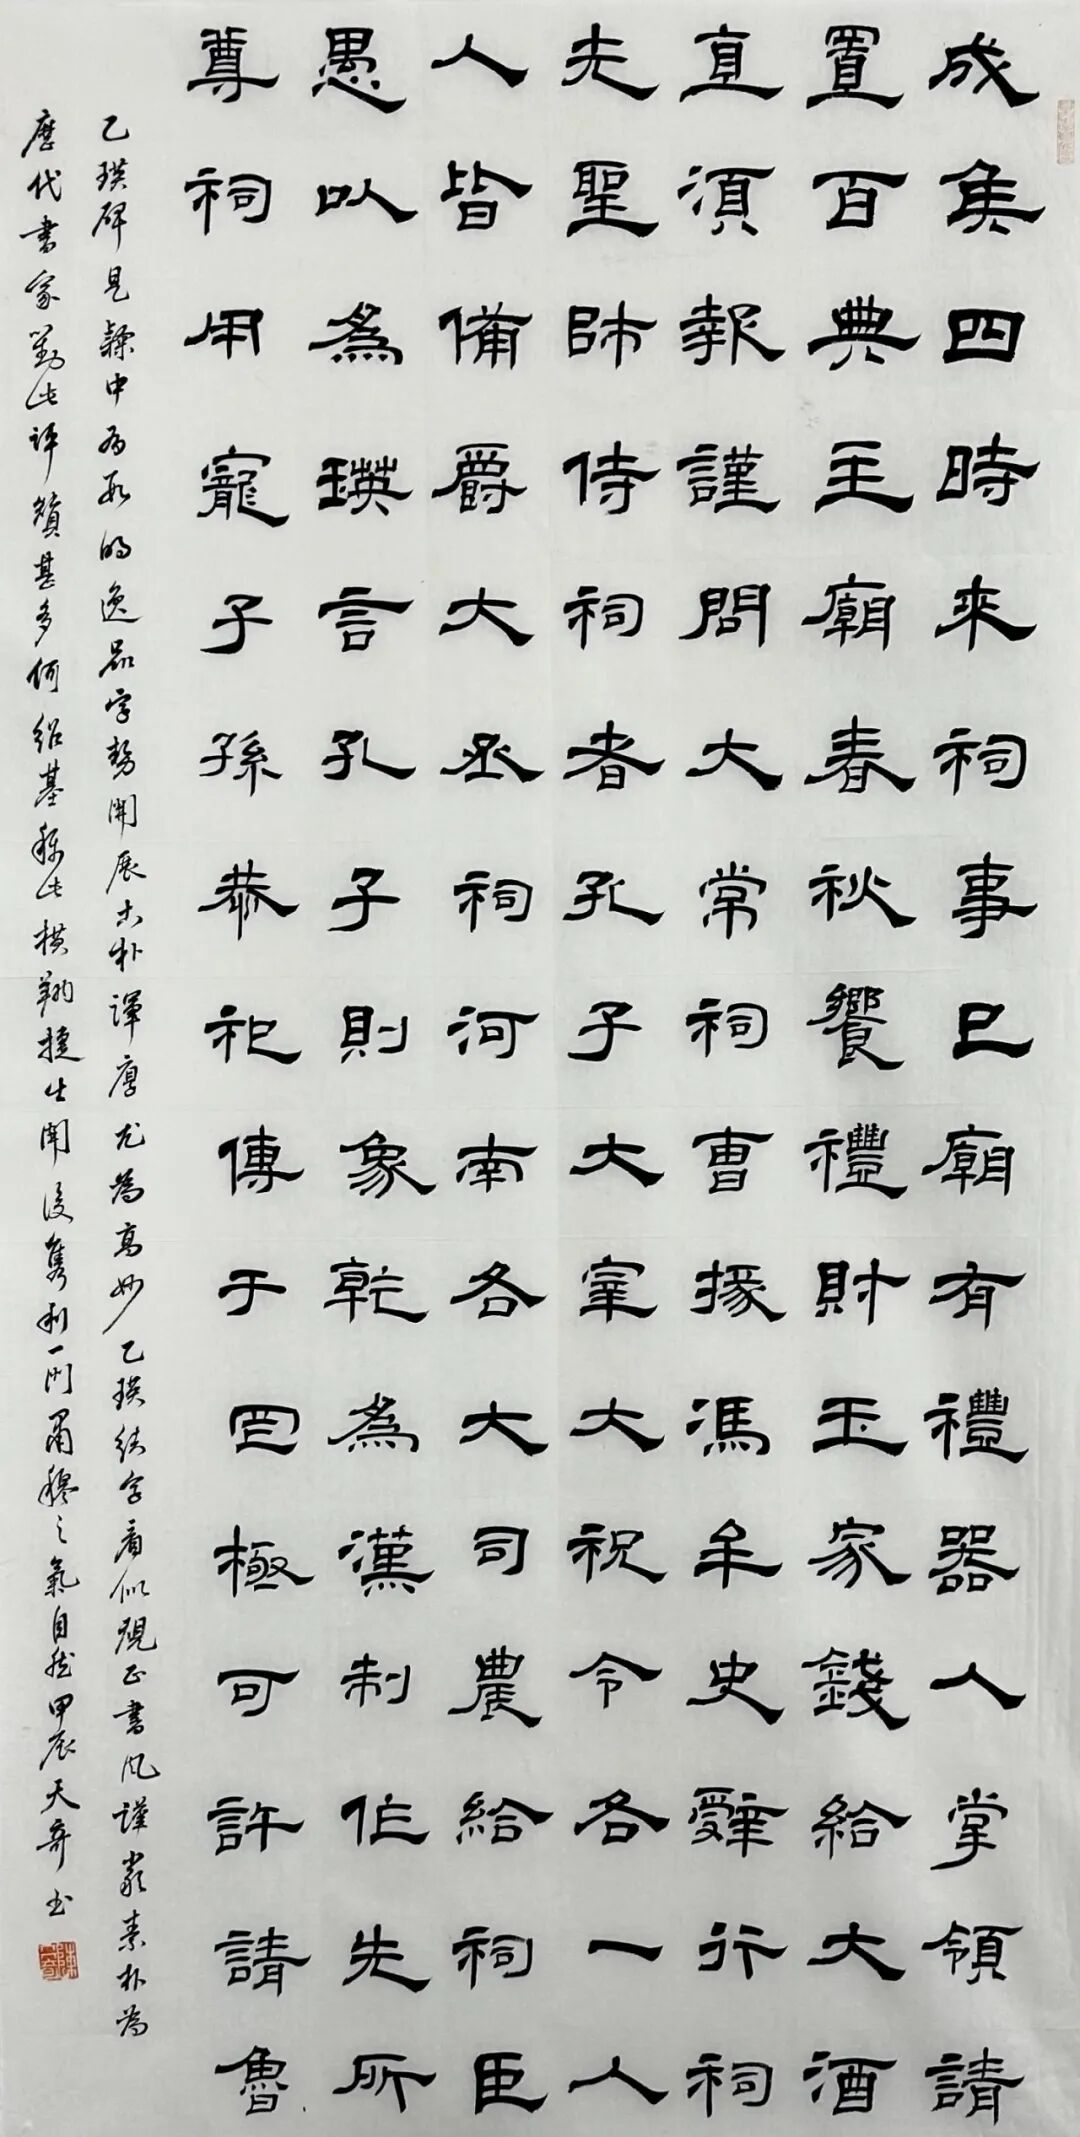 成矦四時來祠事已廟有禮器人掌領請
置百典主廟春秋饗禮財玉家錢給大酒
直須報謹問大常祠曹掾馮牟史辤行祠
先聖師侍祠者孔子大宰大祝令各一人
人皆備爵大丞祠河南各大司農給祠臣
愚以為瑛言孔子則象乾為漢制作先所
尊祠用寵子孫恭祀傳于罔極可許請魯
乙瑛碑是隸中为数的逸品字勢開展古朴渾厚尤為高妙乙瑛结字看似規正書风謹嚴素朴為
歷代書家對此评赞甚多何绍基称此横翔捷出開後雋利一门肅穆之氣自然甲辰天奇书